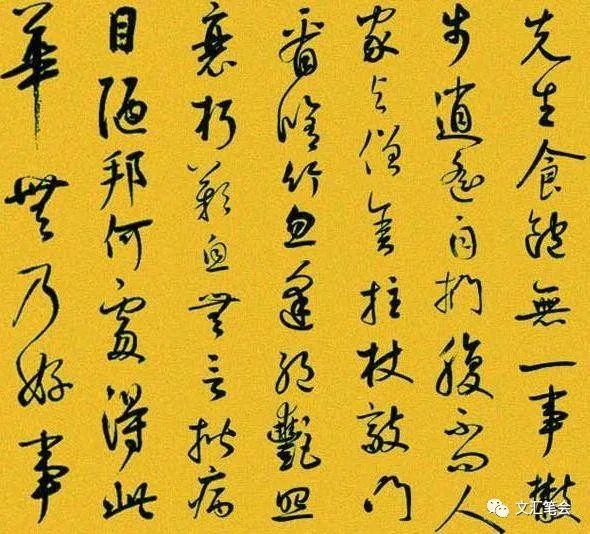 先生食飽無一事散
步逍遙自捫腹不問人
家與僧舍拄杖敲門
看脩竹忽逢絕豔照
衰朽歎息無言揩病
目陋邦何處得此
華無乃好事
文汇笔会